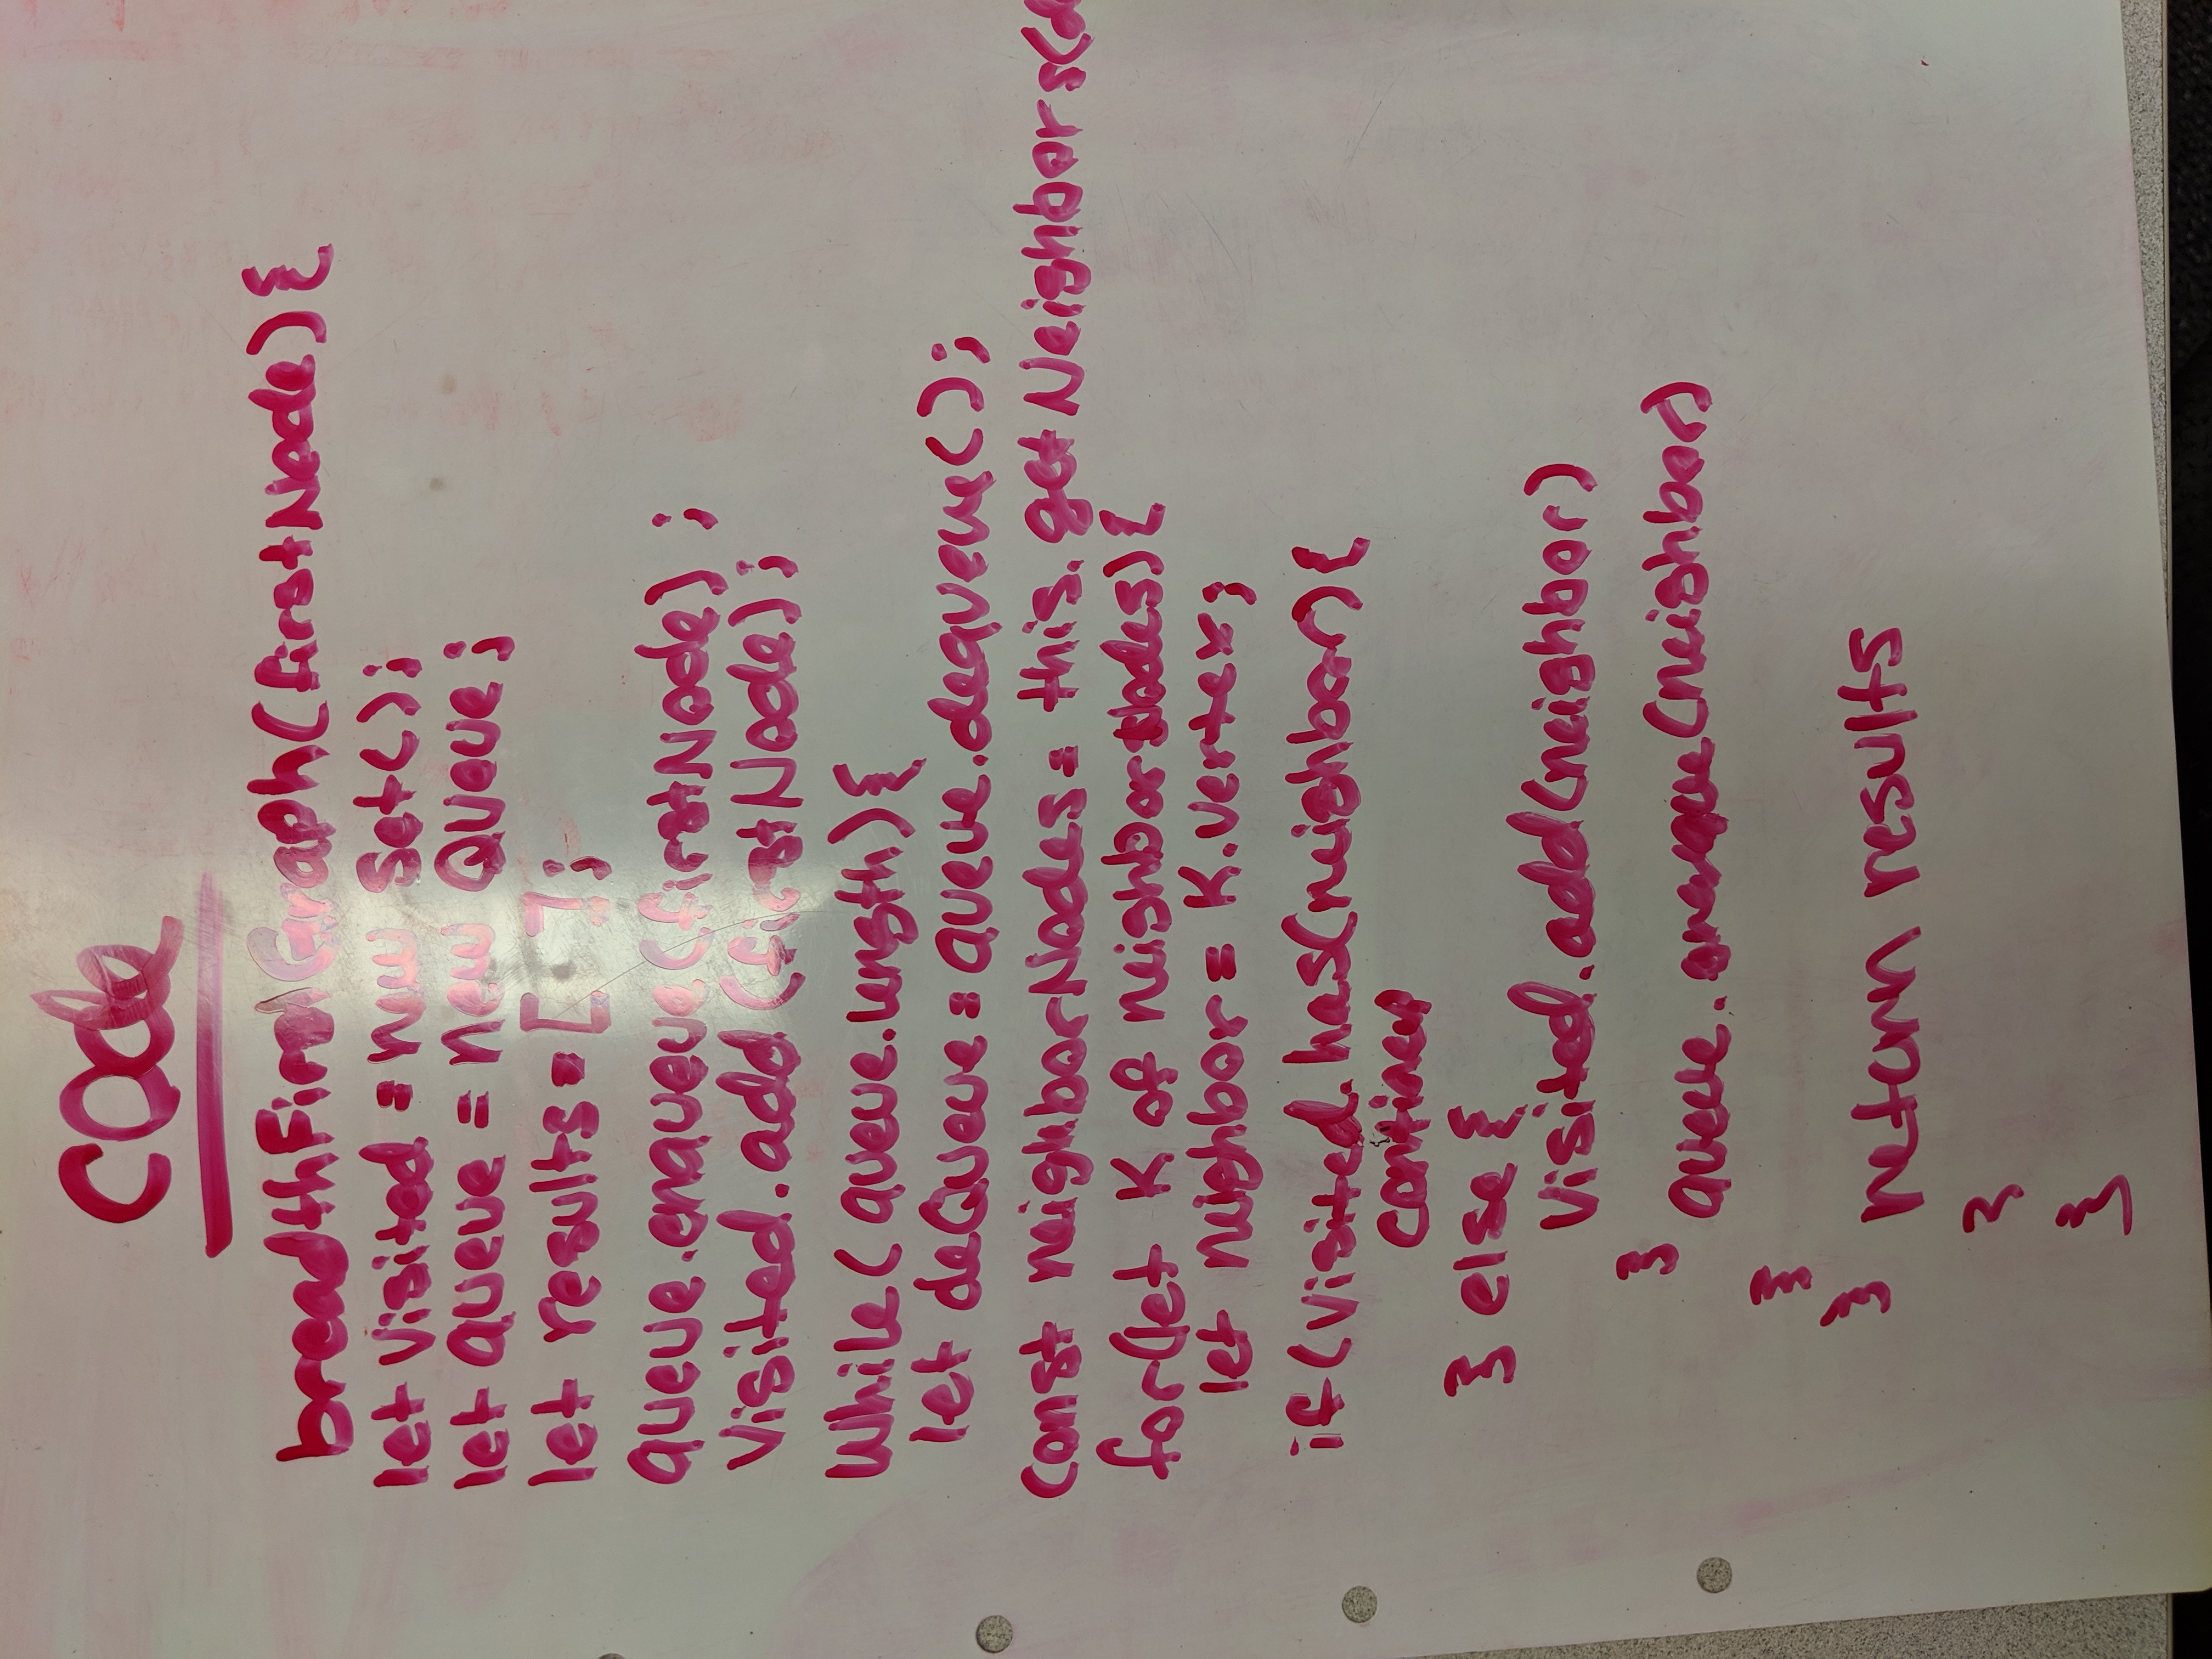 code
breadthFirstGraph(firstNode){
let visited = new Set();
let queue = new Queue;
let results = [ ];
queue.enqueue(firstNode) ;
visited.add(firstNode);
While(queue.length){
let deQueue = queue.dequeue();
const neighborNodes = this.getNeighbors(de
for(let K of neighborNodes){
let neighbor = K.vertex;
if(visited.has(neighbor){
continue
} else {
visited.add(neighbor)
}
queue. (neighbor)
}
}
return results
}
}